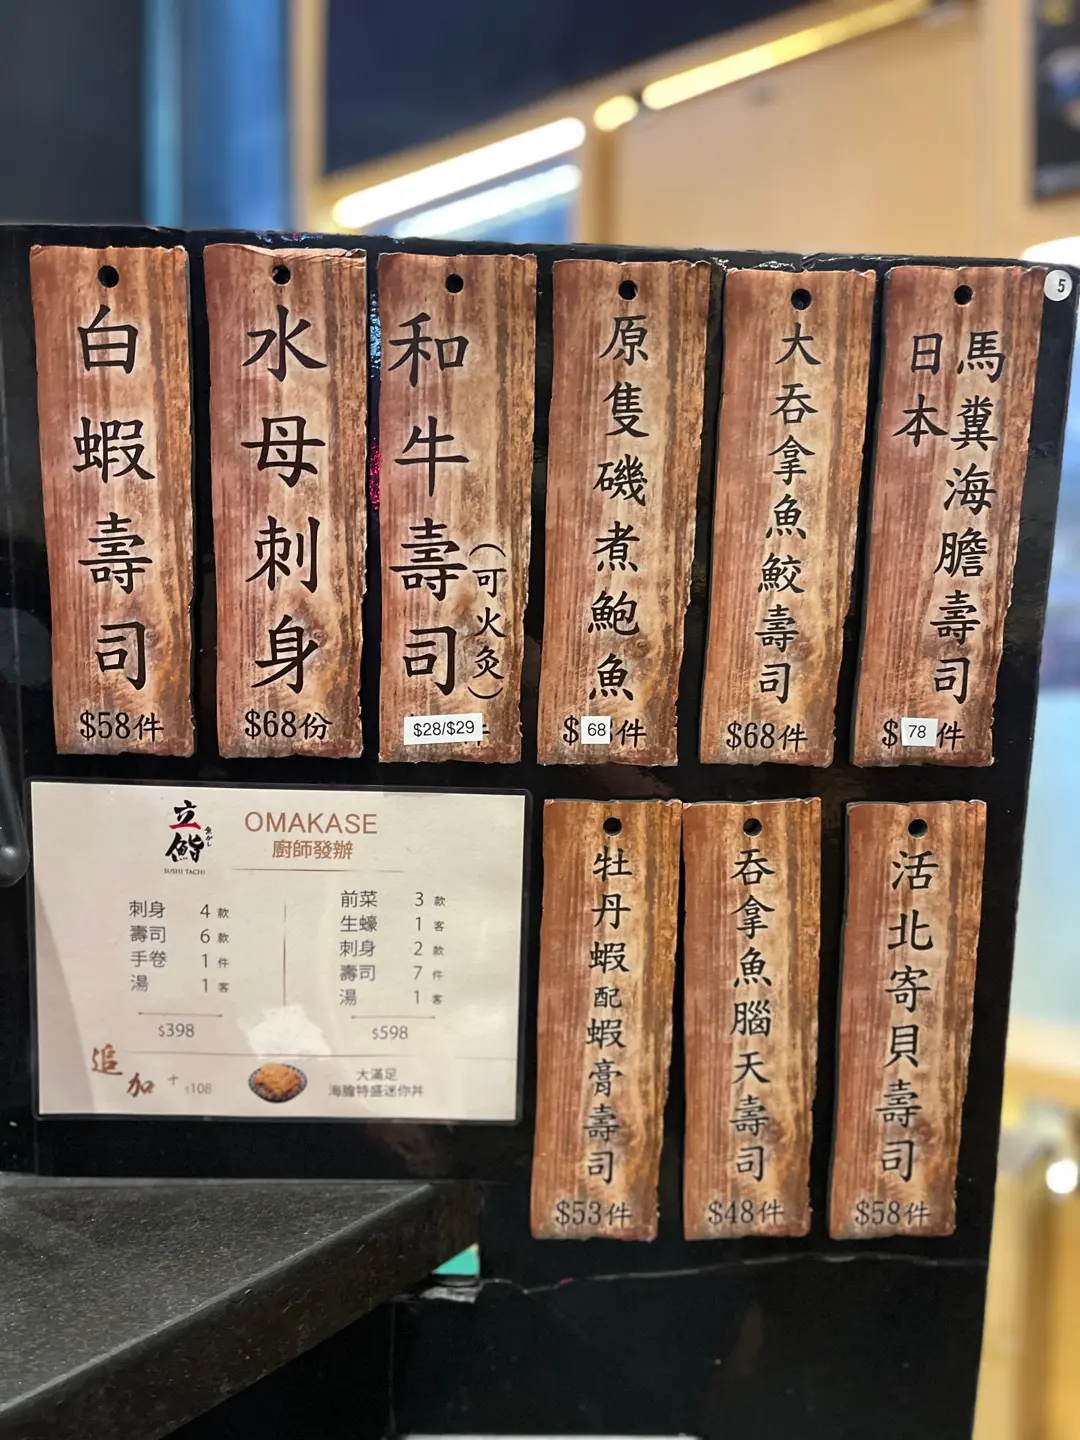 白蝦壽司
$58件
水母刺身
$68份
和牛壽司
(可火灸)
$28/$29
件
原隻磯煮鮑魚
$68件
大吞拿魚鮫壽司
$68件
日本
馬糞海膽壽司
$78件
5
立鮨
SUSHI TACHI
OMAKASE
廚師發辦
刺身 4 款
壽司 6 款
手卷 1 件
湯 1 客
$398
前菜 3 款
生蠔 1 客
刺身 2 款
壽司 7 件
湯 1 客
$598
追加 + $108
大滿足
海膽特盛迷你丼
牡丹蝦配蝦膏壽司
$53件
吞拿魚腦天壽司
$48件
活北寄貝壽司
$58件